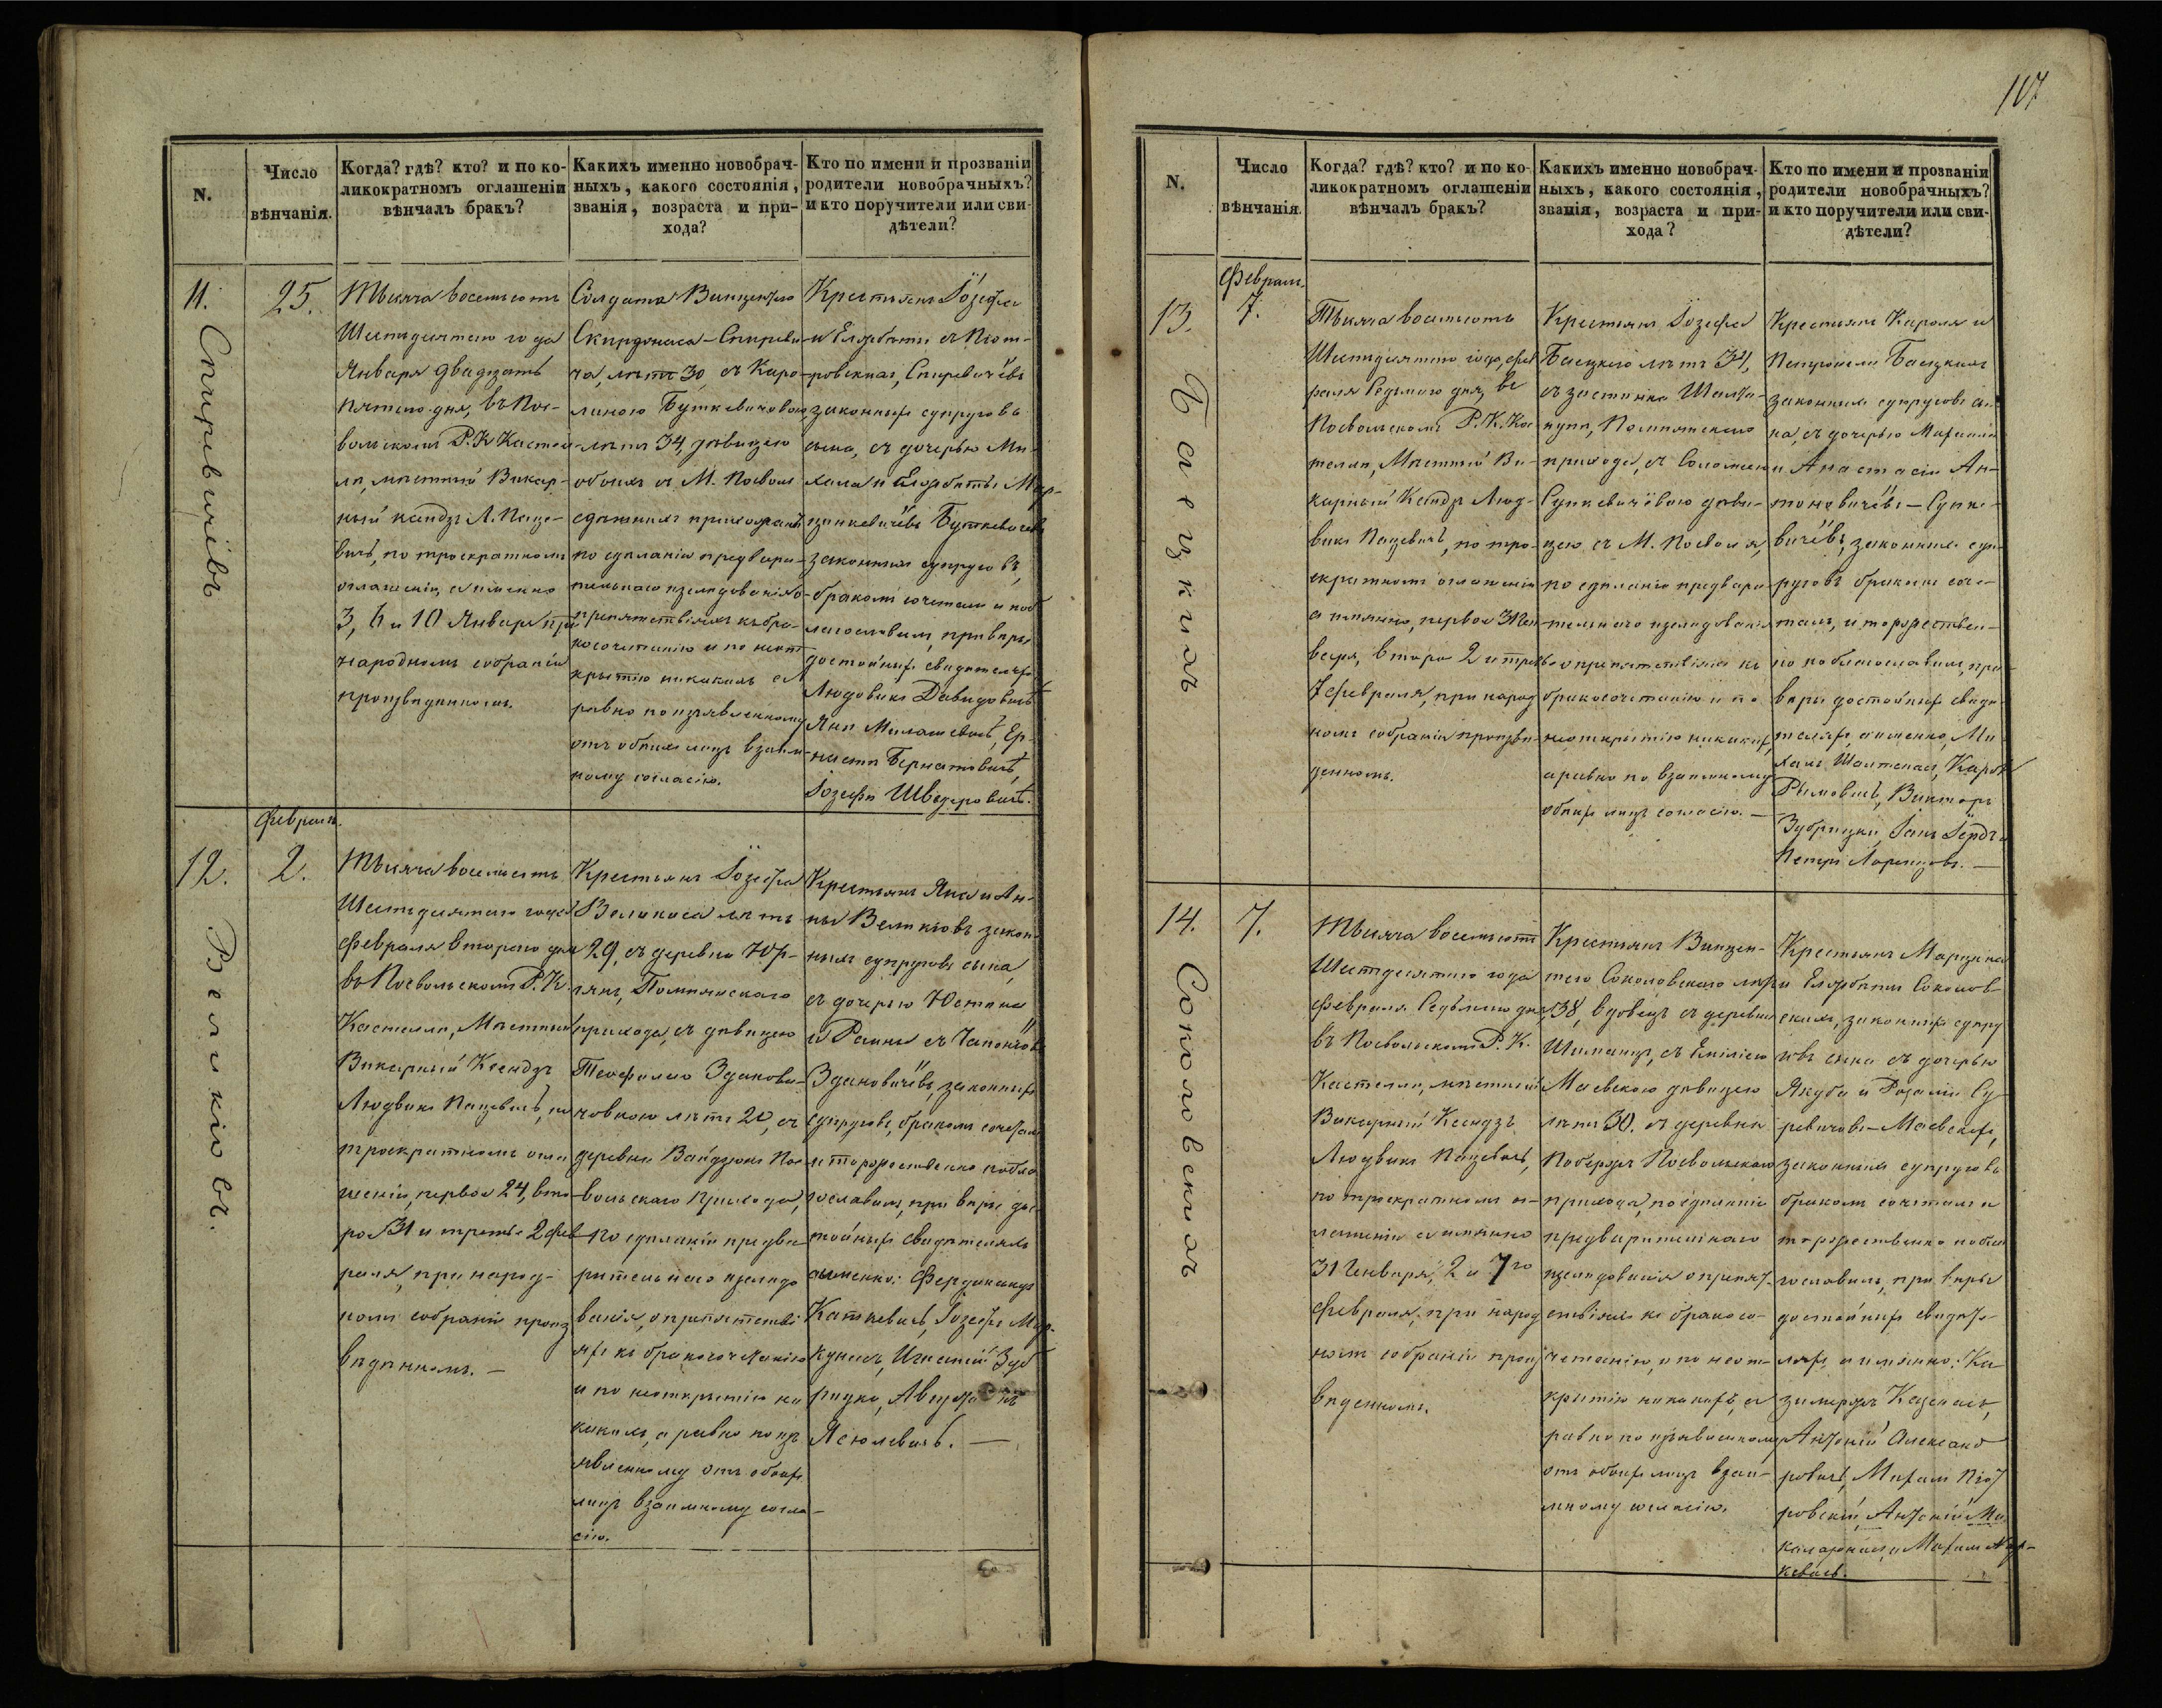 107
N.
Число
вѣнчанія.
Когда? гдѣ? кто? и по ко-
ликократномъ оглашеніи
вѣнчалъ бракъ?
Какихъ именно новобрач-
ныхъ, какого состоянія,
званія, возраста и при-
хода?
Кто по имени и прозваніи
родители новобрачныхъ?
и кто поручители или сви-
дѣтели?
11.
Спиревичёвъ
25.
Тысяча восемьсотъ
Шестидесятаго года
Января двадцать
пятаго дня, въ Пос-
вольскомъ Р. К. Костел-
ѣ, мѣстный Викар-
ный ксендзъ Л. Паце-
вичъ, по троекратномъ
оглашеніи, а именно
3, 6 и 10 Января при
народномъ собраніи
произведенномъ.
Солдата Винцентаго
Скирдонаса-Спиреви-
ча, лѣтъ 30, съ Каро-
линою Буткевичовою
лѣтъ 34, дѣвицею
обоихъ съ М. Посволя
прихожанъ
по сдѣланіи предвари-
тельнаго изслѣдованія о
препятствіяхъ къ бра-
косочетанію и по неот-
крытію никакихъ а
равно по изъявленному
отъ обоихъ лицъ взаим-
ному согласію.
Крестьянъ Іозефа
и Елжбеты съ Піот-
ровскихъ, Спиревичёвъ
законныхъ супруговъ
сына, съ дочерью Ми-
хала и Елжбеты Мар-
цинкевичёвъ Буткевичевъ
законныхъ супруговъ,
бракомъ сочеталъ и поб-
лагословилъ, при вѣры
достойныхъ свидѣтеляхъ
Людовикѣ Давидовичъ
Янъ Милашевичъ, Ер-
нестъ Бернатовичъ,
Іозефъ Шведеровичъ.
12.
Великіовъ.
Февраля.
2.
Тысяча восемьсотъ
Шестидесятаго года
Февраля втораго дня
въ Посвольскомъ Р. К.
Костелѣ, Мѣстный
Викарный Ксендзъ
Людвикъ Пацевичъ, по
троекратномъ огла-
шеніи, первое 24, вто-
ро 31 и третье 2 Фев-
раля, при народ-
номъ собраніи произ
веденномъ. —
Крестьянъ Іозефа
Великаса лѣтъ
29, съ деревни Юр-
гянъ, Помпянскаго
прихода, съ дѣвицею
Теофилею Зданови-
човною лѣтъ 20, съ
деревни Вайдзюнъ Пос-
вольскаго прихода,
по сдѣланіи предва-
рительнаго изслѣдо
ванія, о препятстві
яхъ къ бракосочетанію
и по неоткрытію ни
какихъ, а равно по изъ
явленному отъ обоихъ
лицъ взаимному согла-
сію.
Крестьянъ Яна и Ан-
ны Великіовъ закон-
ныхъ супруговъ сына,
съ дочерью Юстина
и Раины съ Чапонёвъ
Здановичёвъ, законныхъ
супруговъ, бракомъ сочеталъ
и торжественно побла
гословилъ, при вѣры дос-
тойныхъ свидѣтеляхъ
а именно: Фердинандъ
Каткевичъ, Іозефъ Мар-
кунасъ, Игнатій Зуб
рицко,
Ясюлевичъ. —
N.
Число
вѣнчанія.
Когда? гдѣ? кто? и по ко-
ликократномъ оглашеніи
вѣнчалъ бракъ?
Какихъ именно новобрач-
ныхъ, какого состоянія,
званія, возраста и при-
хода?
Кто по имени и прозваніи
родители новобрачныхъ?
и кто поручители или сви-
дѣтели?
13.
Баецкихъ
Февраля.
7.
Тысяча восемьсотъ
Шестидесятаго года, Фев
раля Седьмаго дня, въ
Посвольскомъ Р. К. Кос
телѣ, Мѣстный Ви-
карный Ксендзъ Люд-
викъ Пацевичъ, по тро-
екратномъ оглашеніи
а именно, первое 31 Ген
варя, второ 2 и третье
7 Февраля, при народ
номъ собраніи произве-
денномъ.
Крестьянъ Іозефа
Баецкаго лѣтъ 34,
съ застѣнка
Помпянскаго
прихода, съ Саломеи
Сункевичёвою дѣви-
цею съ М. Посволя,
по сдѣланіи предвари
тельнаго изслѣдованія
о препятствіяхъ къ
бракосочетанію и по
неоткрытію никакихъ,
а равно по взаимному
обоихъ лицъ согласію. —
Крестьянъ Кароля и
Петронели Баецкихъ
законныхъ супруговъ сы-
на, съ дочерью Михаила
и Анастасіи Ан-
тоневичёвъ-Сунке-
вичёвъ, законныхъ суп-
руговъ бракомъ соче-
талъ, и торжествен-
но поблагословилъ, при
вѣры достойныхъ свидѣ-
теляхъ, а именно, Ми
халъ Шалтенасъ, Кароль
Рымовичъ, Викторъ
Зубрицки, Янъ
Петръ Лоренцовъ. —
14.
Соколовскихъ
7.
Тысяча восемьсотъ
Шестидесятаго года
Февраля Седьмаго дня
въ Посвольскомъ Р. К.
Костелѣ, мѣстный
Викарный Ксендзъ
Людвикъ Пацевичъ,
по троекратномъ ог-
лашеніи а именно
31 Генваря, 2 и 7го
Февраля, при народ
номъ собраніи произ
веденномъ.
Крестьянъ Винцен-
таго Соколовскаго лѣтъ
38, вдовецъ съ деревни
съ Еміліею
Маевскою дѣвицею
лѣтъ 30. съ деревни
Посвольскаго
прихода, по сдѣланіи
предварительнаго
изслѣдованія о препят-
ствіяхъ къ бракосо-
четанію, и по неот-
крытію никакихъ, а
равно по изъявленному
отъ обоихъ лицъ взаи-
мному согласію.
Крестьянъ Марцина
и Елжбеты Соколов-
скихъ, законныхъ супру
говъ сына съ дочерью
Якуба и Розаліи Су-
ревичовъ-Маевскихъ,
законныхъ супруговъ
бракомъ сочеталъ и
торжественно побла
гословилъ, при вѣры
достойныхъ свидѣте-
ляхъ, а именно: Ка-
зимержъ Казенасъ,
Антоній Александ
ровичъ, Михалъ Піот
ровскій, Антоній Ми
Михалъ
кевичъ.